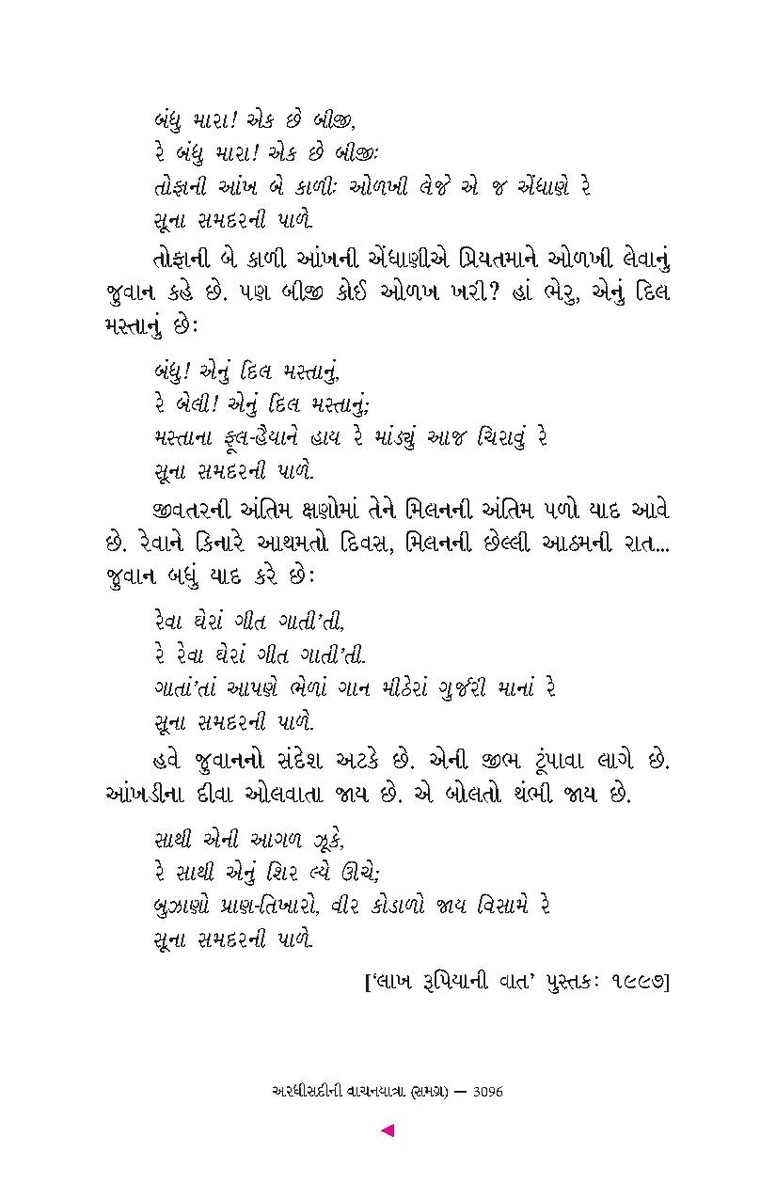 બંધુ મારા! એક છે બીજી,
રે બંધુ મારા! એક છે બીજીઃ
તોફાની આંખ બે કાળીઃ ઓળખી લેજે એ જ એંધાણે રે
સૂના સમદરની પાળે.
તોફાની બે કાળી આંખની એંધાણીએ પ્રિયતમાને ઓળખી લેવાનું
જુવાન કહે છે. પણ બીજી કોઈ ઓળખ ખરી? હાં ભેરુ, એનું દિલ
મસ્તાનું છેઃ
બંધુ! એનું દિલ મસ્તાનું,
રે બેલી! એનું દિલ મસ્તાનું;
મસ્તાના ફૂલ-હૈયાને હાય રે માંડ્યું આજ ચિરાવું રે
સૂના સમદરની પાળે.
જીવતરની અંતિમ ક્ષણોમાં તેને મિલનની અંતિમ પળો યાદ આવે
છે. રેવાને કિનારે આથમતો દિવસ, મિલનની છેલ્લી આઠમની રાત...
જુવાન બધું યાદ કરે છેઃ
રેવા ઘેરાં ગીત ગાતી’તી,
રે રેવા ઘેરાં ગીત ગાતી’તી.
ગાતાં’તાં આપણે ભેળાં ગાન મીઠેરાં ગુર્જરી માનાં રે
સૂના સમદરની પાળે.
હવે જુવાનનો સંદેશ અટકે છે. એની જીભ ટૂંપાવા લાગે છે.
આંખડીના દીવા ઓલવાતા જાય છે. એ બોલતો થંભી જાય છે.
સાથી એની આગળ ઝૂકે,
રે સાથી એનું શિર લ્યે ઊંચે;
બુઝાણો પ્રાણ-તિખારો, વીર કોડાળો જાય વિસામે રે
સૂના સમદરની પાળે.
[‘લાખ રૂપિયાની વાત’ પુસ્તકઃ ૧૯૯૭]
અરધીસદીની વાચનયાત્રા (સમગ્ર) — 3096